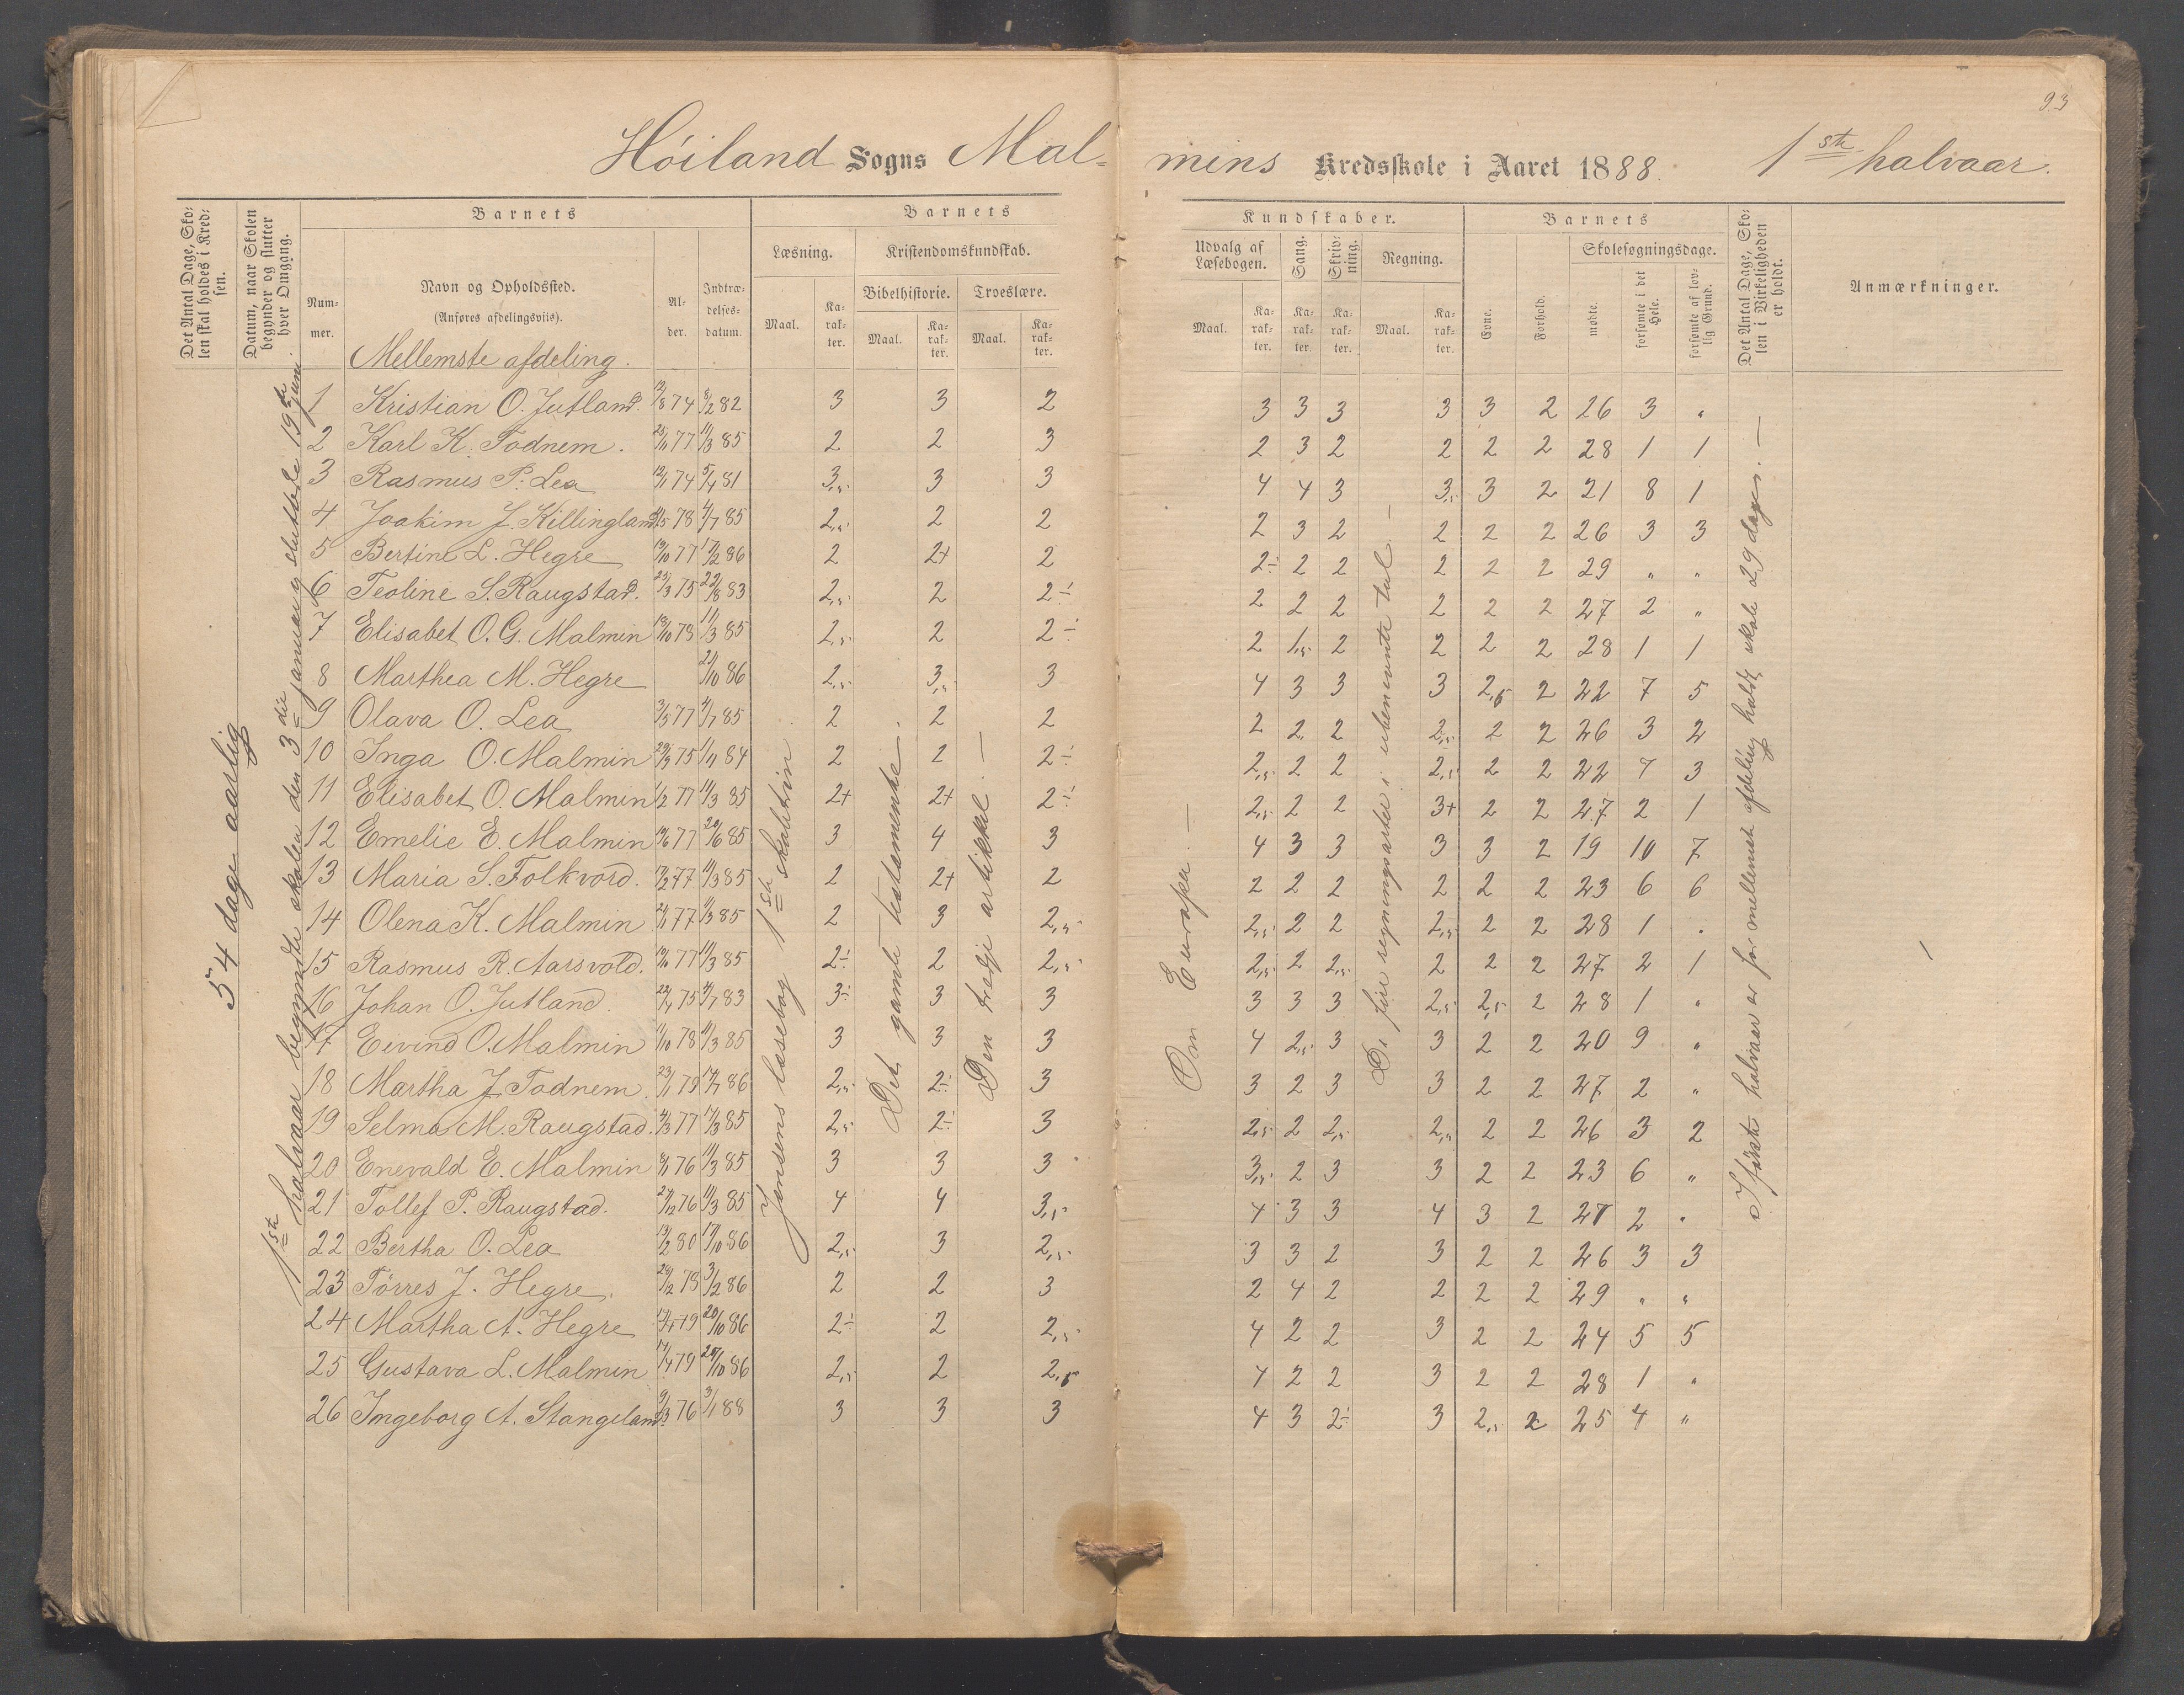 93
Høiland Sogns Mal-
mins Kredsskole i Aaret 1888. 1ste halvaar.
Det Antal Dage, Sko-
len skal holdes i Kred-
sen.
Datum, naar Skolen
begynder og slutter
hver Omgang.
Barnets
Num-
mer.
Navn og Opholdssted.
(Anføres afdelingsviis).
Al-
der.
Indtræ-
delses-
datum.
Barnets
Læsning.
Maal.
Ka-
rak-
ter.
Kristendomskundskab.
Bibelhistorie.
Maal.
Ka-
rak-
ter.
Troeslære.
Maal.
Ka-
rak-
ter.
Kundskaber.
Udvalg af
Læsebogen.
Maal.
Ka-
rak-
ter.
Sang.
Ka-
rak-
ter.
Skriv-
ning.
Ka-
rak-
ter.
Regning.
Maal.
Ka-
rak-
ter.
Barnets
Evne.
Forhold.
Skolesøgningsdage.
mødte.
forsømte i det
Hele.
forsømte af lov-
lig Grund.
Det Antal Dage, Sko-
len i Virkeligheden
er holdt.
Anmærkninger.
Mellemste afdeling.
54 dage aarlig
1ste halvaar begyndte skolen den 3die januar og sluttede 19de juni.
Jensens læsebog 1ste skoletrin
Det gamle testamente
Den tredje artikkel. —
Om Europa. —
De fire regningsarter i ubenevnte tal. —
I første halvaar er for mellemste afdeling holdt skole 29 dage. —
1 Kristian O. Jutland. 12/8 74 8/2 82 3 3 2 3 3 3 3 3 2 26 3 "
2 Karl K. Todnem. 25/11 77 11/3 85 2 2 3 2 3 2 2 2 2 28 1 1
3 Rasmus P. Lea 12/1 74 5/4 81 3,5 3 3 4 4 3 3,5 3 2 21 8 1
4 Joakim J. Killingland 78 4/7 85 2,5 2 2 2 3 2 2 2 2 26 3 3
5 Bertine L. Hegre 19/10 77 17/2 86 2 2+ 2 2÷ 2 2 2 2 2 29 " "
6 Teoline S. Raugstad. 23/3 75 22/8 83 2,5 2 2÷ 2 2 2 2 2 2 27 2 "
7 Elisabet O. G. Malmin 78 11/3 85 2,5 2 2÷ 2 1,5 2 2 2 2 28 1 1
8 Marthea M. Hegre 21/10 86 2,5 3,5 3 4 3 3 3 2,5 2 22 7 5
9 Olava O. Lea 3/5 77 4/7 85 2 2 2 2 2 2 2,5 2 2 26 3 2
10 Inga O. Malmin 29/3 75 1/4 84 2 2 2÷ 2,5 2 2 2,5 2 2 22 7 3
11 Elisabet O. Malmin 1/2 77 11/3 85 2+ 2+ 2÷ 2,5 2 2 3+ 2 2 27 2 1
12 Emelie E. Malmin 77 20/6 85 3 4 3 4 3 3 3 3 2 19 10 7
13 Maria S. Folkvord. 77 11/3 85 2 2+ 2 2 2 2 2 2 2 23 6 6
14 Olena K. Malmin 77 11/3 85 2 3 2,5 2,5 2 2 2,5 2 2 28 1 .
15 Rasmus R. Aarsvold. 77 11/3 85 2÷ 2 2,5 2,5 2 2,5 2 2 2 27 2 1
16 Johan O. Jutland. 75 4/7 83 3÷ 3 3 3 3 3 2,5 2,5 2 28 1 "
17 Eivind O. Malmin 11/10 78 11/3 85 3 3 3 4 2,5 3 3 2 2 20 9 "
18 Martha J. Todnem. 23/1 79 86 2,5 2÷ 3 3 2 3 3 2 2 27 2 "
19 Selma M. Raugstad. 77 85 2,5 2÷ 3 2,5 2 2,5 2,5 2 2 26 3 2
20 Enevald E. Malmin 76 11/3 85 3 3 3 3,5 2 3 3 2 2 23 6 "
21 Tollef P. Raugstad. 76 11/3 85 4 4 3,5 4 3 3 4 3 2 27 2 "
22 Bertha O. Lea 13/2 80 86 2,5 3 2,5 3 3 2 3 2 2 26 3 3
23 Tørres J. Hegre. 78 3/2 86 2 2 3 2 4 2 2 2 2 29 " "
24 Martha A. Hegre 79 20/10 86 2÷ 2 2,5 4 2 2 3 2 2 24 5 5
25 Gustava L. Malmin 79 86 2,5 2 2,5 4 2 2 3 2 2 28 1 "
26 Ingeborg A. Stangeland 9/3 76 3/1 88 3 3 3 4 3 2÷ 3 2,5 2 25 4 "